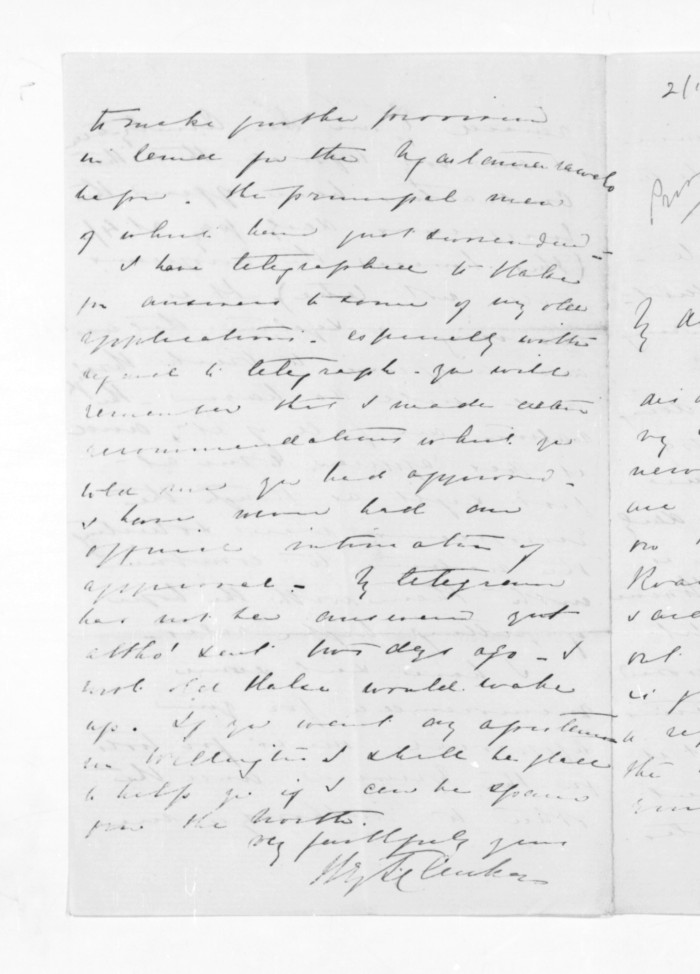 to make further provision
in land for the Ngaitamarawaho
hapu. the principal men
of which have just surrendered -
I have telegraphed to Halse
for answers to some of my old
applications - especially with
regard to telegraph - you will
remember that I made certain
recommendations which you
told me you had approved -
I have never had an
official intimation of
approval - My telegram
has not been answered yet
altho' sent two days ago - I
wish old Halse would wake
up. If you want any assistance
in Wellington I shall be glad
to help you if I can be spared
from the North.
Very faithfully yours
H. T. Clarke
2/
My
are
very
new
are
on
Road
said
out
is
a
the